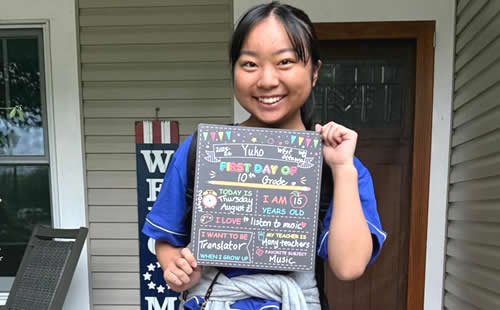 Yuko
FIRST DAY OF
10th Grade
TODAY IS
Thursday
August 21
I AM 15
YEARS OLD
I LOVE to listen to music
I WANT TO BE
Translator
WHEN I GROW UP
MY TEACHER IS
Many teachers
FAVORITE SUBJECT
Music
W
E